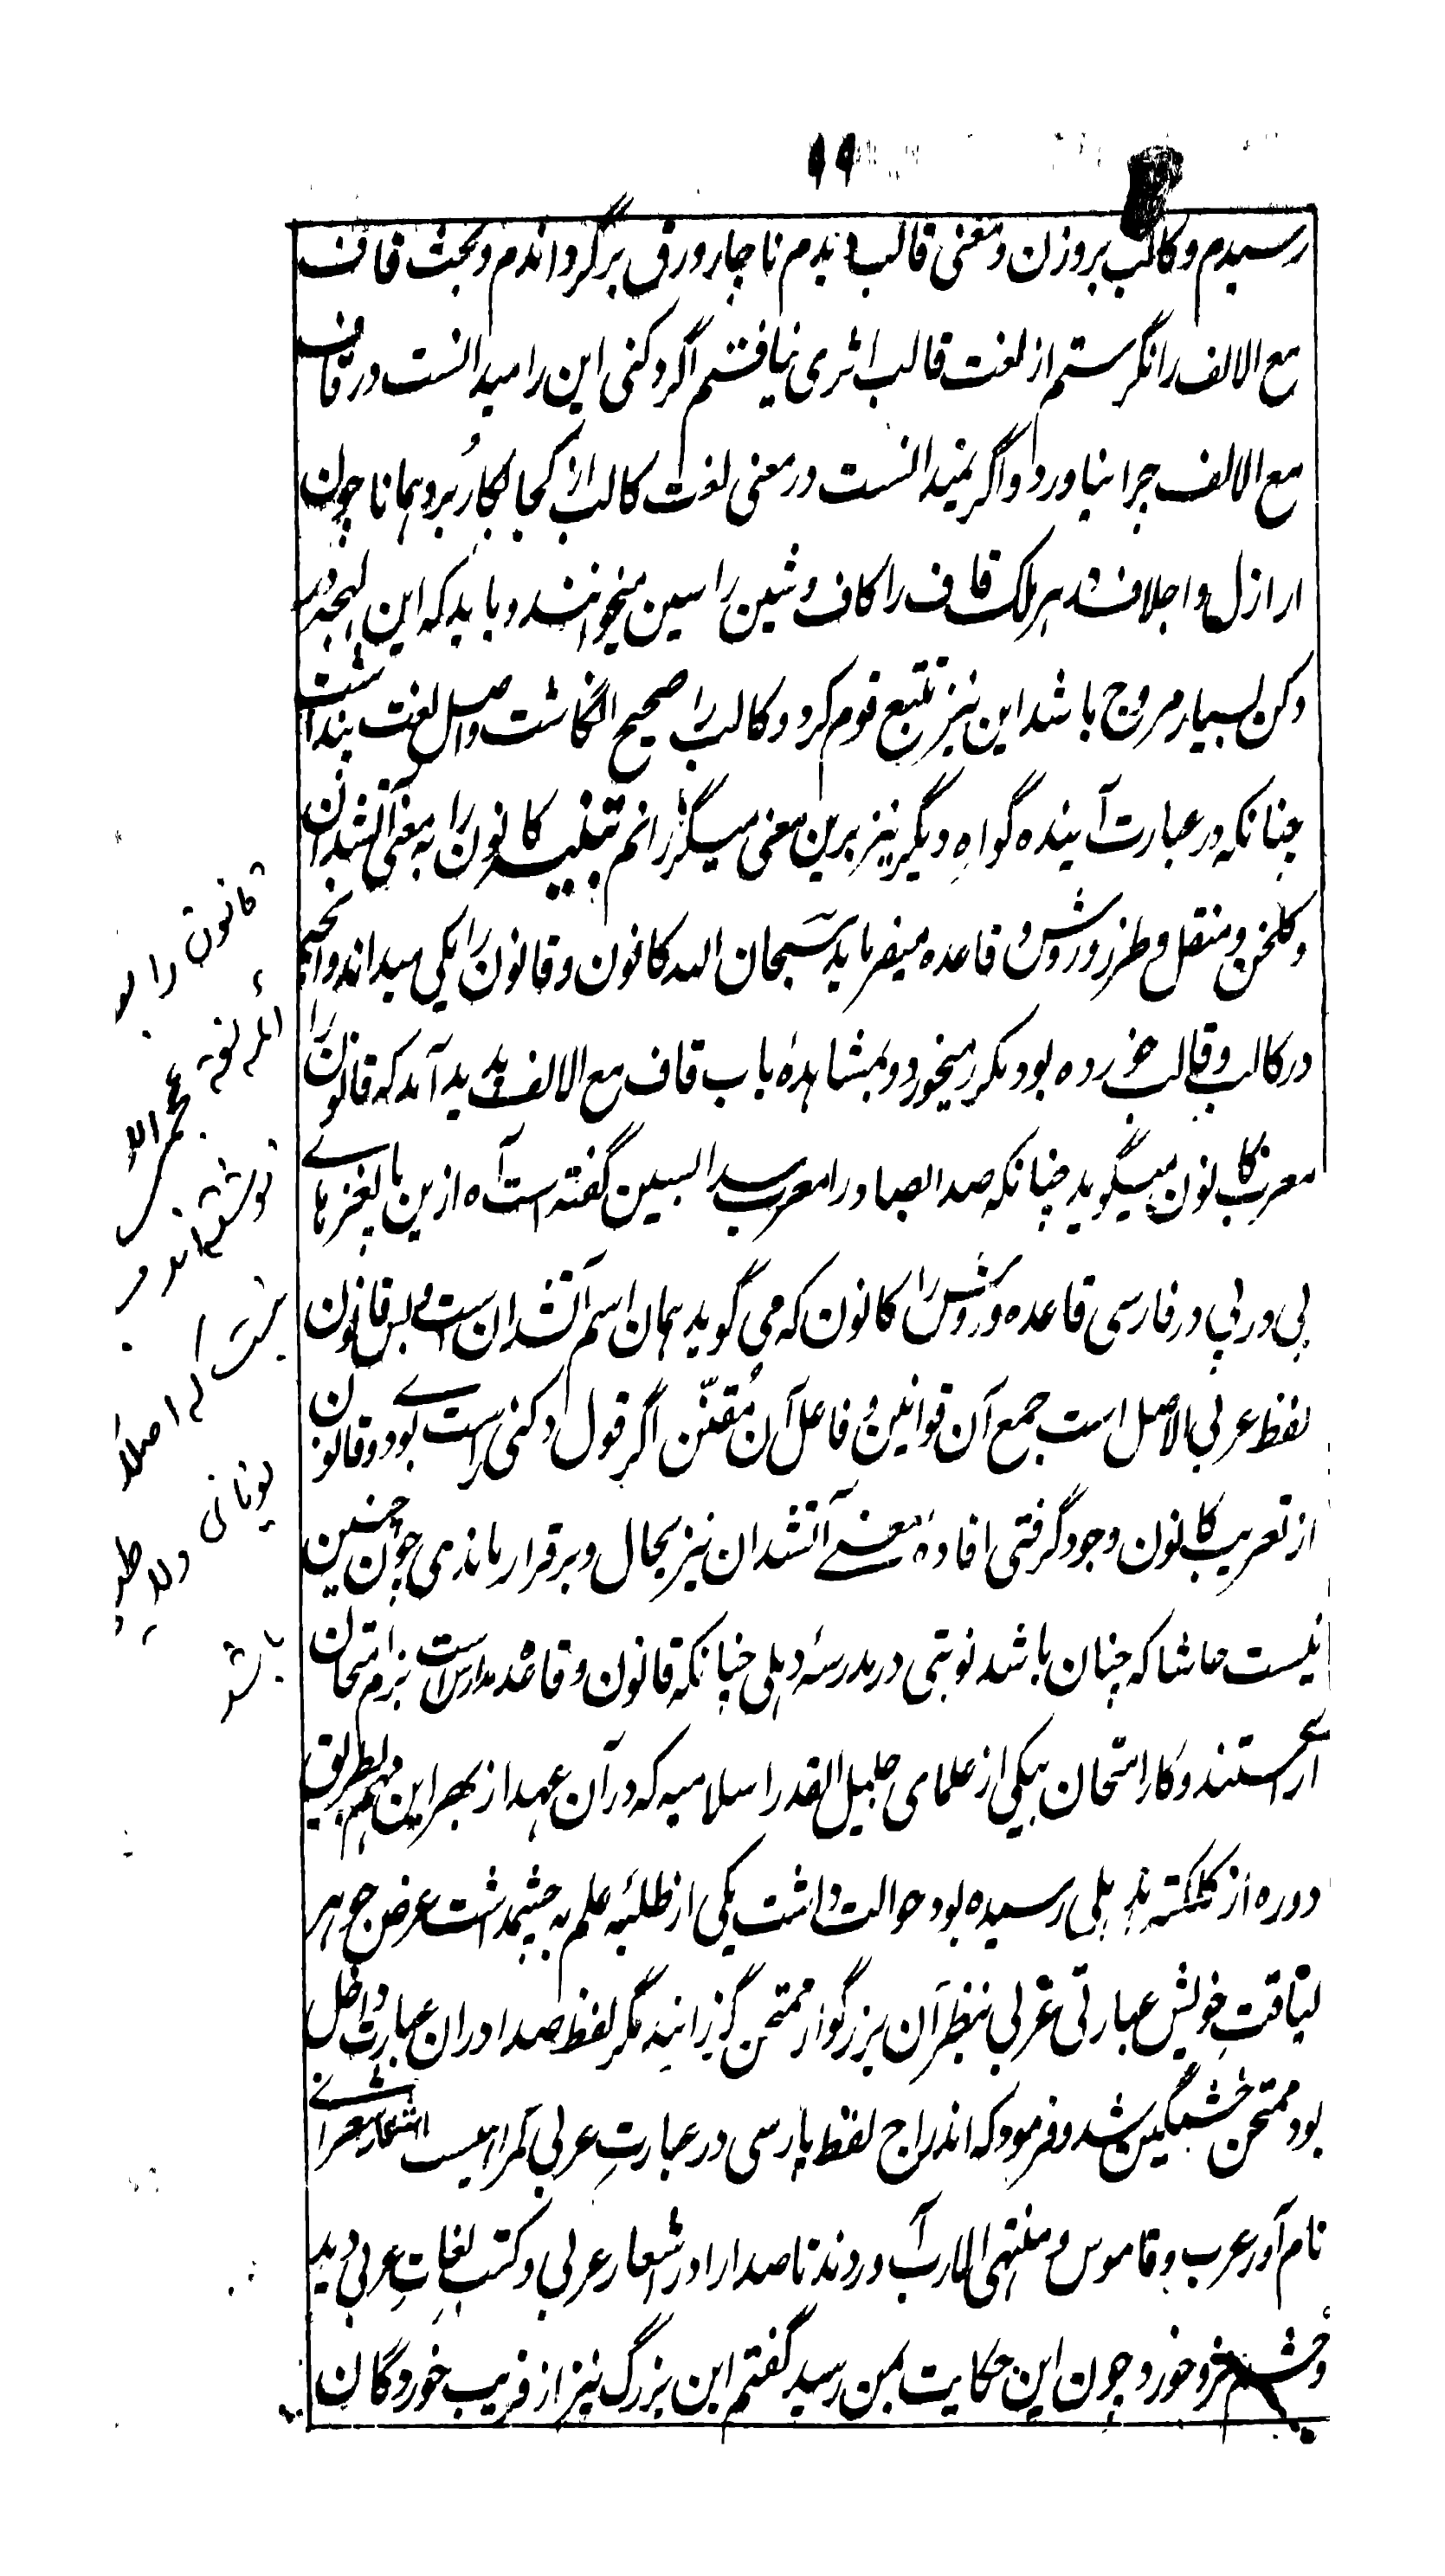 ۹۹
رسیدم و کالب بر وزن و معنی قالب دیدم ناچار ورق برگرداندم و بحث قاف
مع الالف را نگرستم از لغت قالب اثری نیافتم اگر دکنی این را میدانست در قاف
مع الالف چرا نیاورد و اگر نمیدانست در معنی لغت کالب از کجا بکار برد همانا چون
ارازل و اجلاف هر ملک قاف را کاف و شین را سین میخوانند و باید که این لهجه در
دکن بسیار مروج باشد این نیز تتبع قوم کرد و کالب را صحیح انگاشت و اصل لغت پنداشت
چنانکه در عبارت آینده گواهِ دیگر نیز برین معنی میگذرانم تنبیه کانون را به معنی آتشدان
و گلخن و منقل و طرز و روش و قاعده میفرماید سبحان الله کانون و قانون را یکی میداند و آنچه
در کالب و قالب خورده بود مکرر میخورد و بمشاهدهٔ باب قاف مع الالف پدید آمد که قانون را
معرب کانون میگوید چنانکه صدا بصاد را معرب سدا بسین گفته است آه ازین پا لغزهای
پی در پی در فارسی قاعده و روش را کانون که می گوید همان اسم آتشدان است و بس قانون
لفظ عربی الاصل است جمع آن قوانین و فاعل آن مُقنّن اگر قول دکنی راست بودے و قانون
از تعریب کانون وجود گرفتی افادهٔ معنے آتشدان نیز بحال و برقرار ماندی چون چنین
نیست حاشا که چنان باشد نوبتی در مدرسهٔ دهلی چنانکه قانون و قاعده مدارس است بزم امتحان
آراستند و کار امتحان بیکی از علمای جلیل القدر اسلامیه که در آن عهد از بهر این مهم بطریق
دوره از کلکته بدهلی رسیده بود حوالت داشت یکی از طلبهٔ علم به چشمداشت عرض جوهر
لیاقتِ خویش عبارتی عربی بنظر آن بزرگوار ممتحن گزرانید مگر لفظ صدا در ان عبارت داخل
بود ممتحن خشمگین شد و فرمود که اندراج لفظ پارسی در عبارتِ عربی گمراهیست اشعار شعرای
نام آور عرب و قاموس و منتهی الارب آوردند تا صدا را در اشعار عربی و کتب لغاتِ عربی دید
و خشم فرو خورد چون این حکایت بمن رسید گفتم این بزرگ نیز از فریب خوردگان
قانون را
ائمه لغه
نوشته اند و
اصلاً
یونانی
باشد